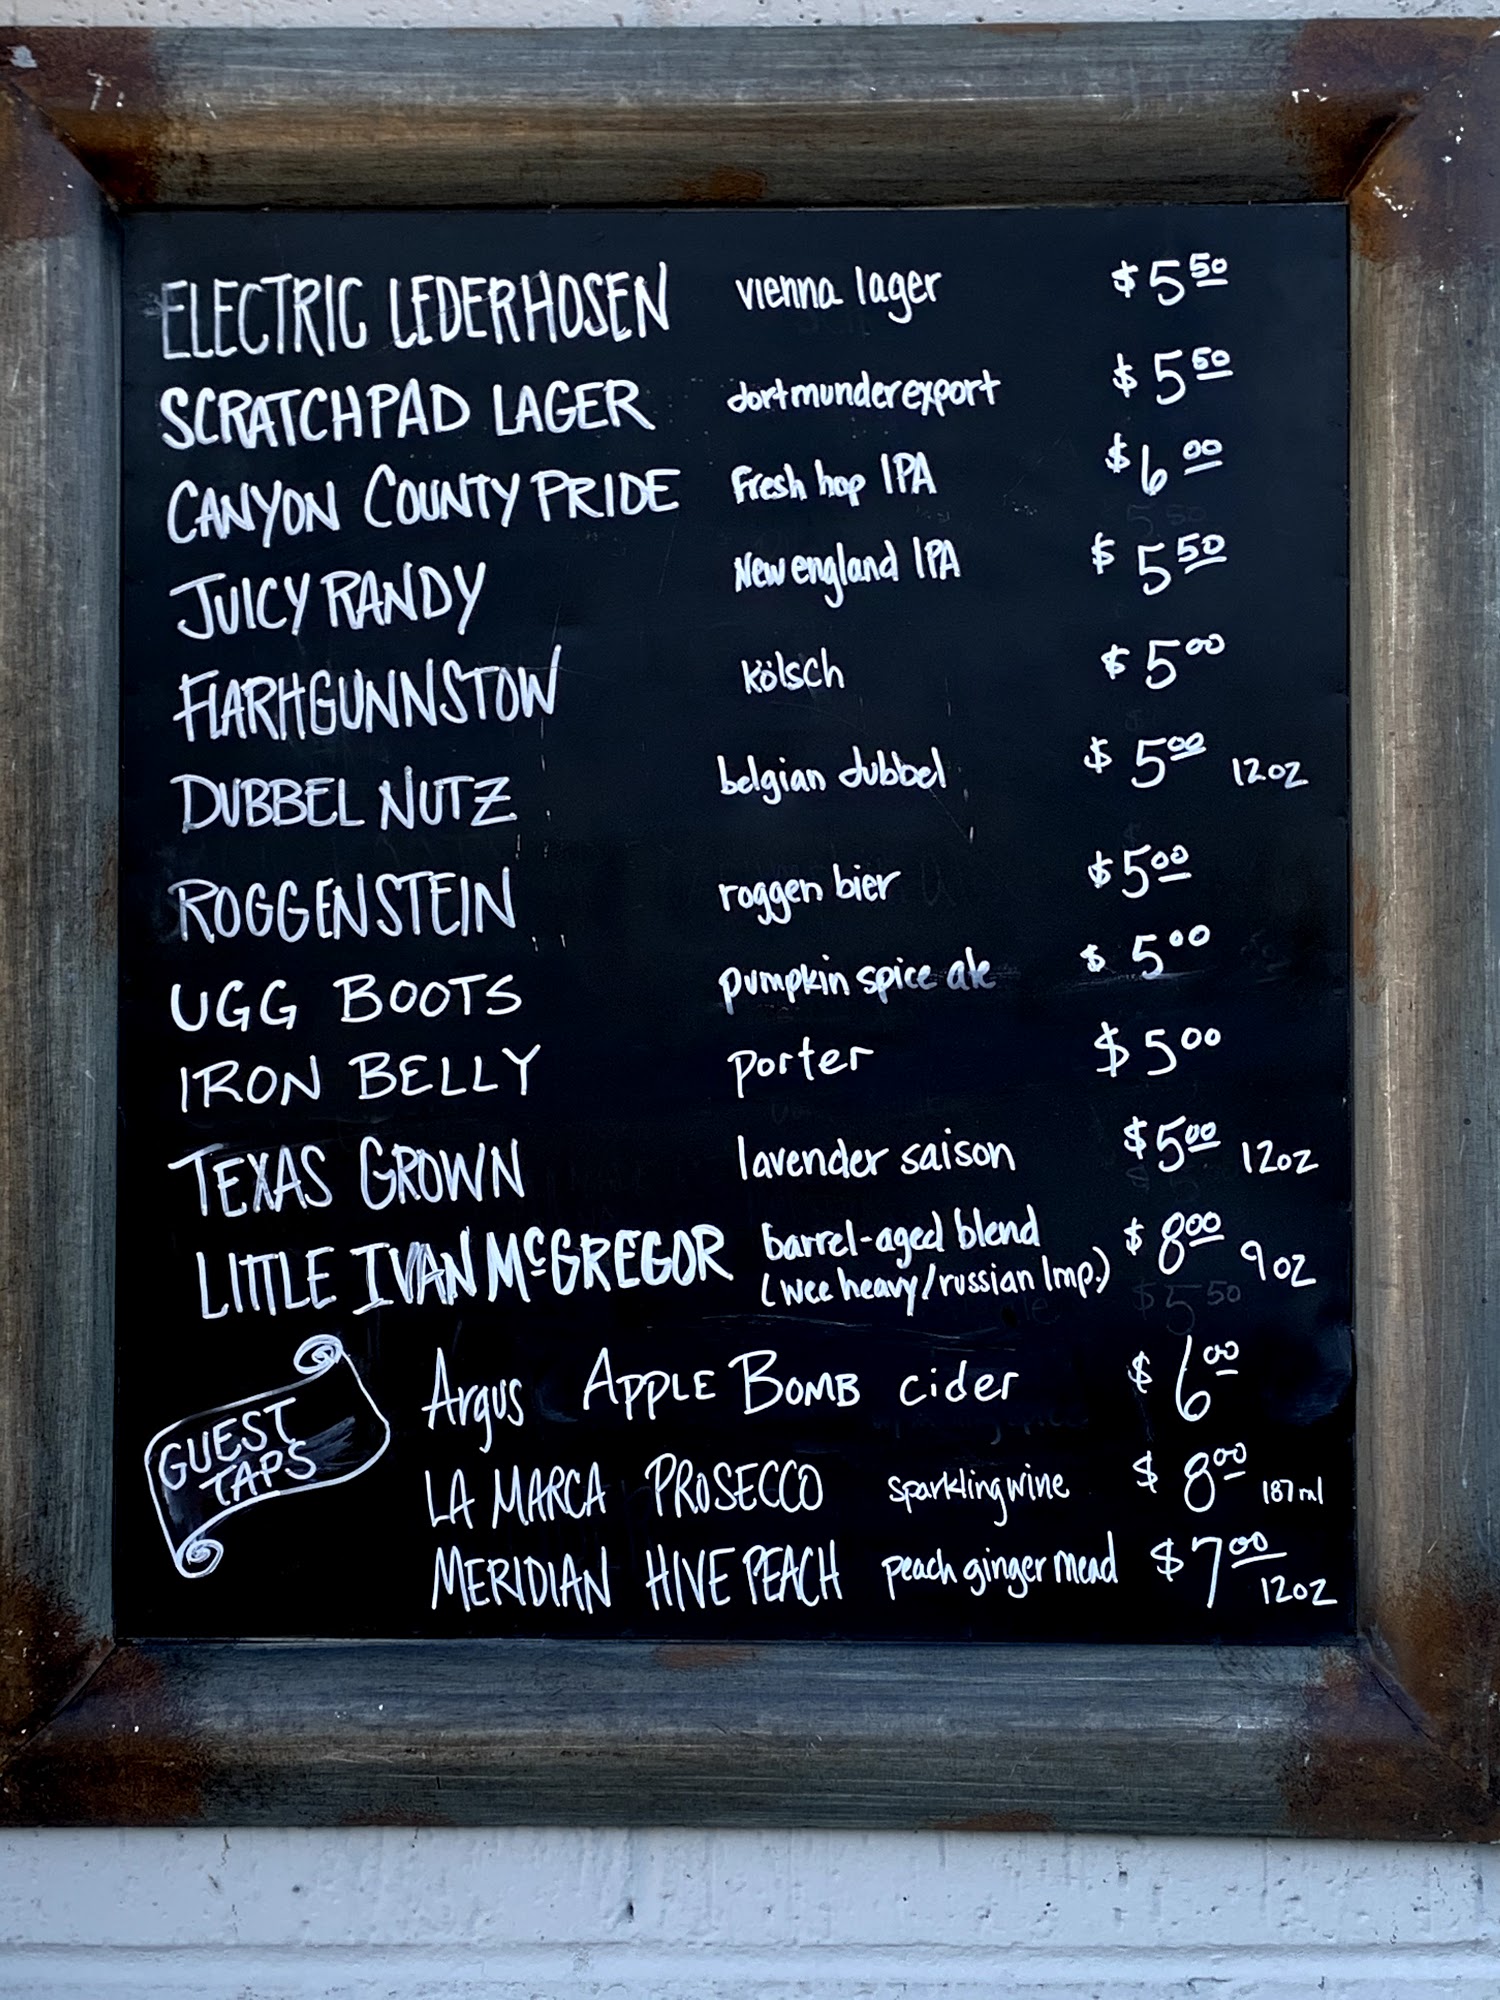 ELECTRIC LEDERHOSEN vienna lager $5 50
SCRATCHPAD LAGER dortmunder export $5 50
CANYON COUNTY PRIDE fresh hop IPA $6 00
JUICY RANDY New england IPA $5 50
FLARHGUNNSTOW kölsch $5 00
DUBBEL NUTZ belgian dubbel $5 00 12oz
ROGGENSTEIN roggen bier $5 00
UGG BOOTS pumpkin spice ale $5 00
IRON BELLY porter $5 00
TEXAS GROWN lavender saison $5 00 12oz
LITTLE IVAN McGREGOR barrel-aged blend $8 00 9oz
(wee heavy/russian Imp.)
GUEST
TAPS
Argus APPLE BOMB cider $6 00
LA MARCA PROSECCO sparkling wine $8 00 187ml
MERIDIAN HIVE PEACH peach ginger mead $7 00 12oz